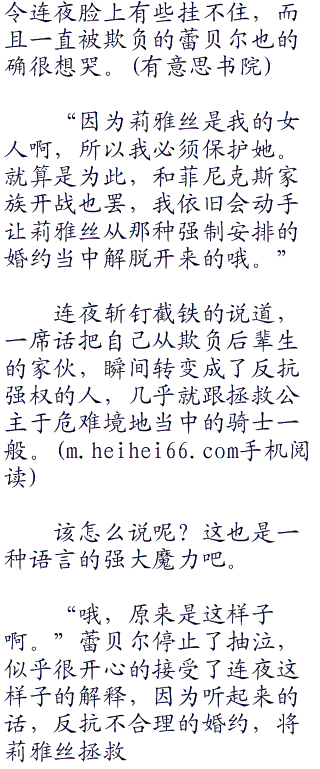 令连夜脸上有些挂不住，而
且一直被欺负的蕾贝尔也的
确很想哭。(有意思书院)
“因为莉雅丝是我的女
人啊，所以我必须保护她。
就算是为此，和菲尼克斯家
族开战也罢，我依旧会动手
让莉雅丝从那种强制安排的
婚约当中解脱开来的哦。”
连夜斩钉截铁的说道，
一席话把自己从欺负后辈生
的家伙，瞬间转变成了反抗
强权的人，几乎就跟拯救公
主于危难境地当中的骑士一
般。(m.heihei66.com手机阅
读)
该怎么说呢？这也是一
种语言的强大魔力吧。
“哦，原来是这样子
啊。”蕾贝尔停止了抽泣，
似乎很开心的接受了连夜这
样子的解释，因为听起来的
话，反抗不合理的婚约，将
莉雅丝拯救